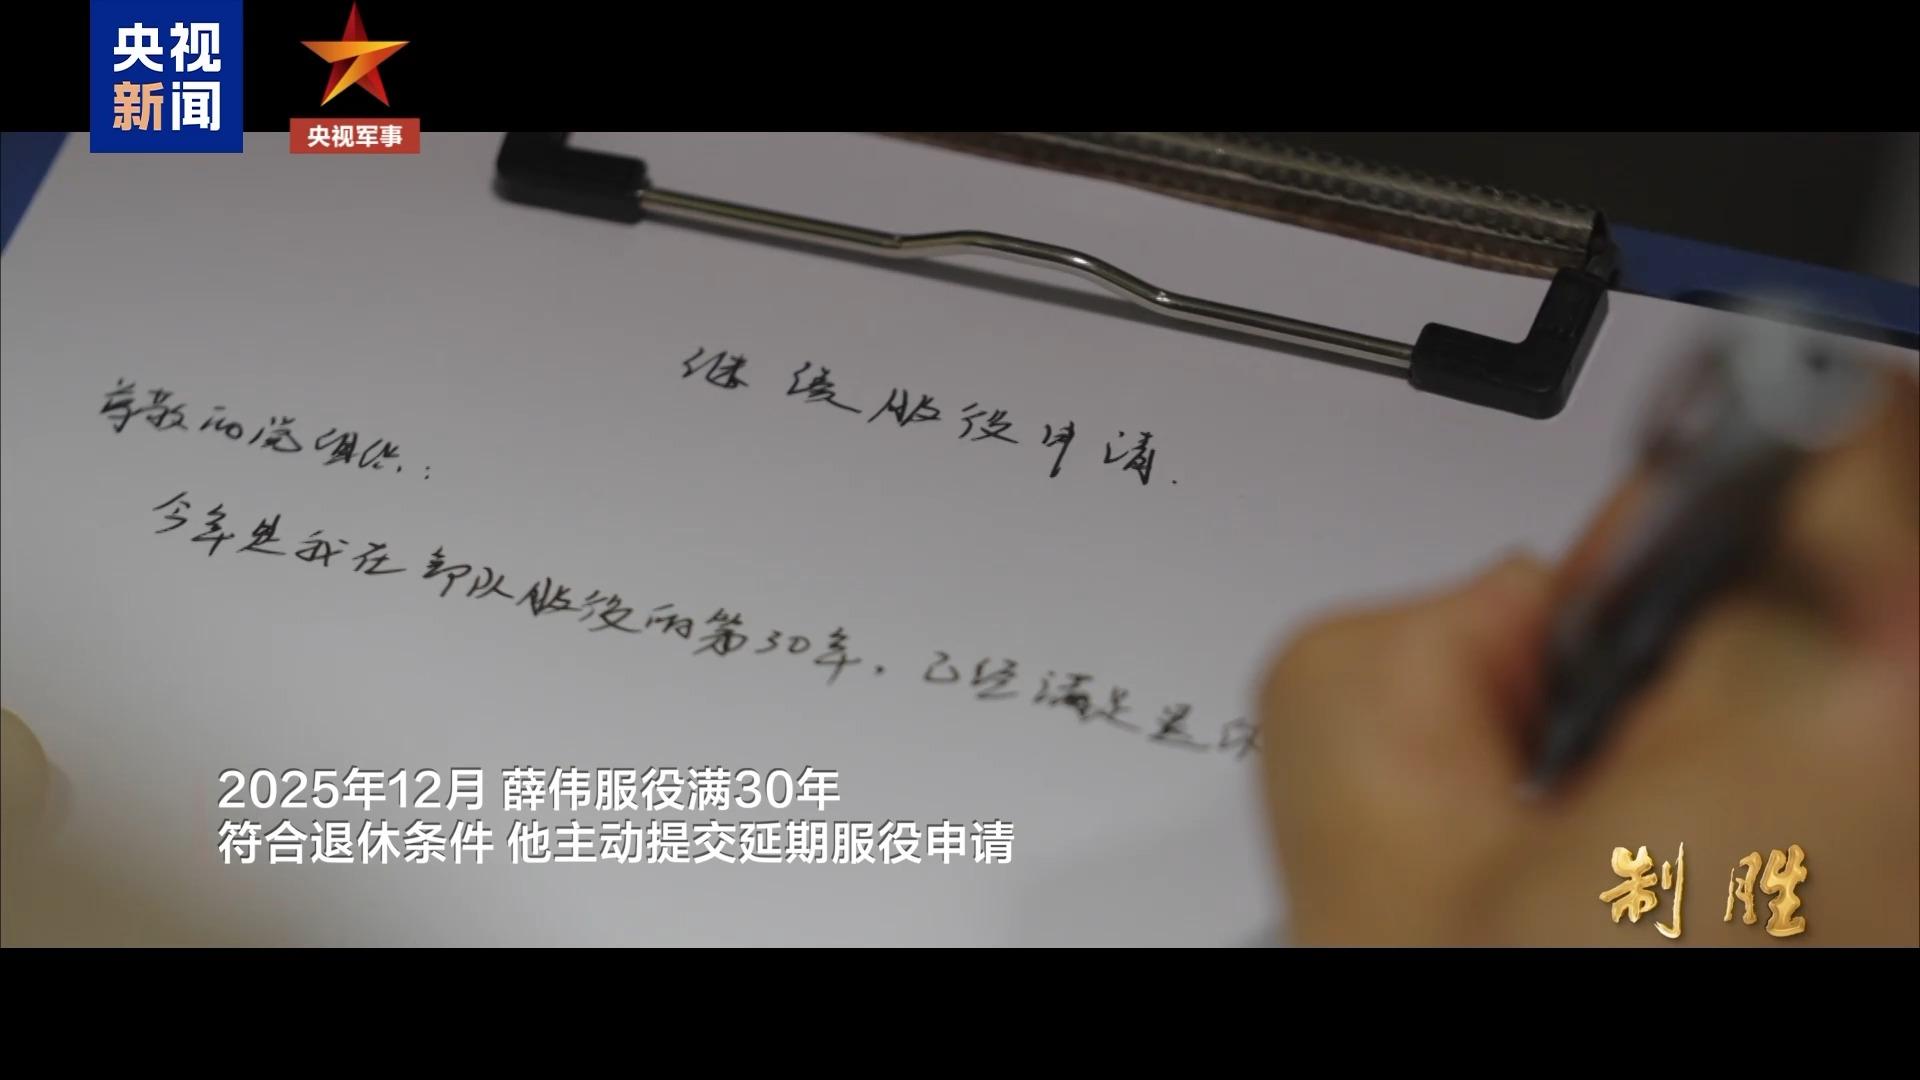 央视
新闻
央视军事
继续服役申请.
尊敬的党组织:
今年是我在部队服役的第30年,已经满足退休
2025年12月 薛伟服役满30年
符合退休条件 他主动提交延期服役申请
制胜